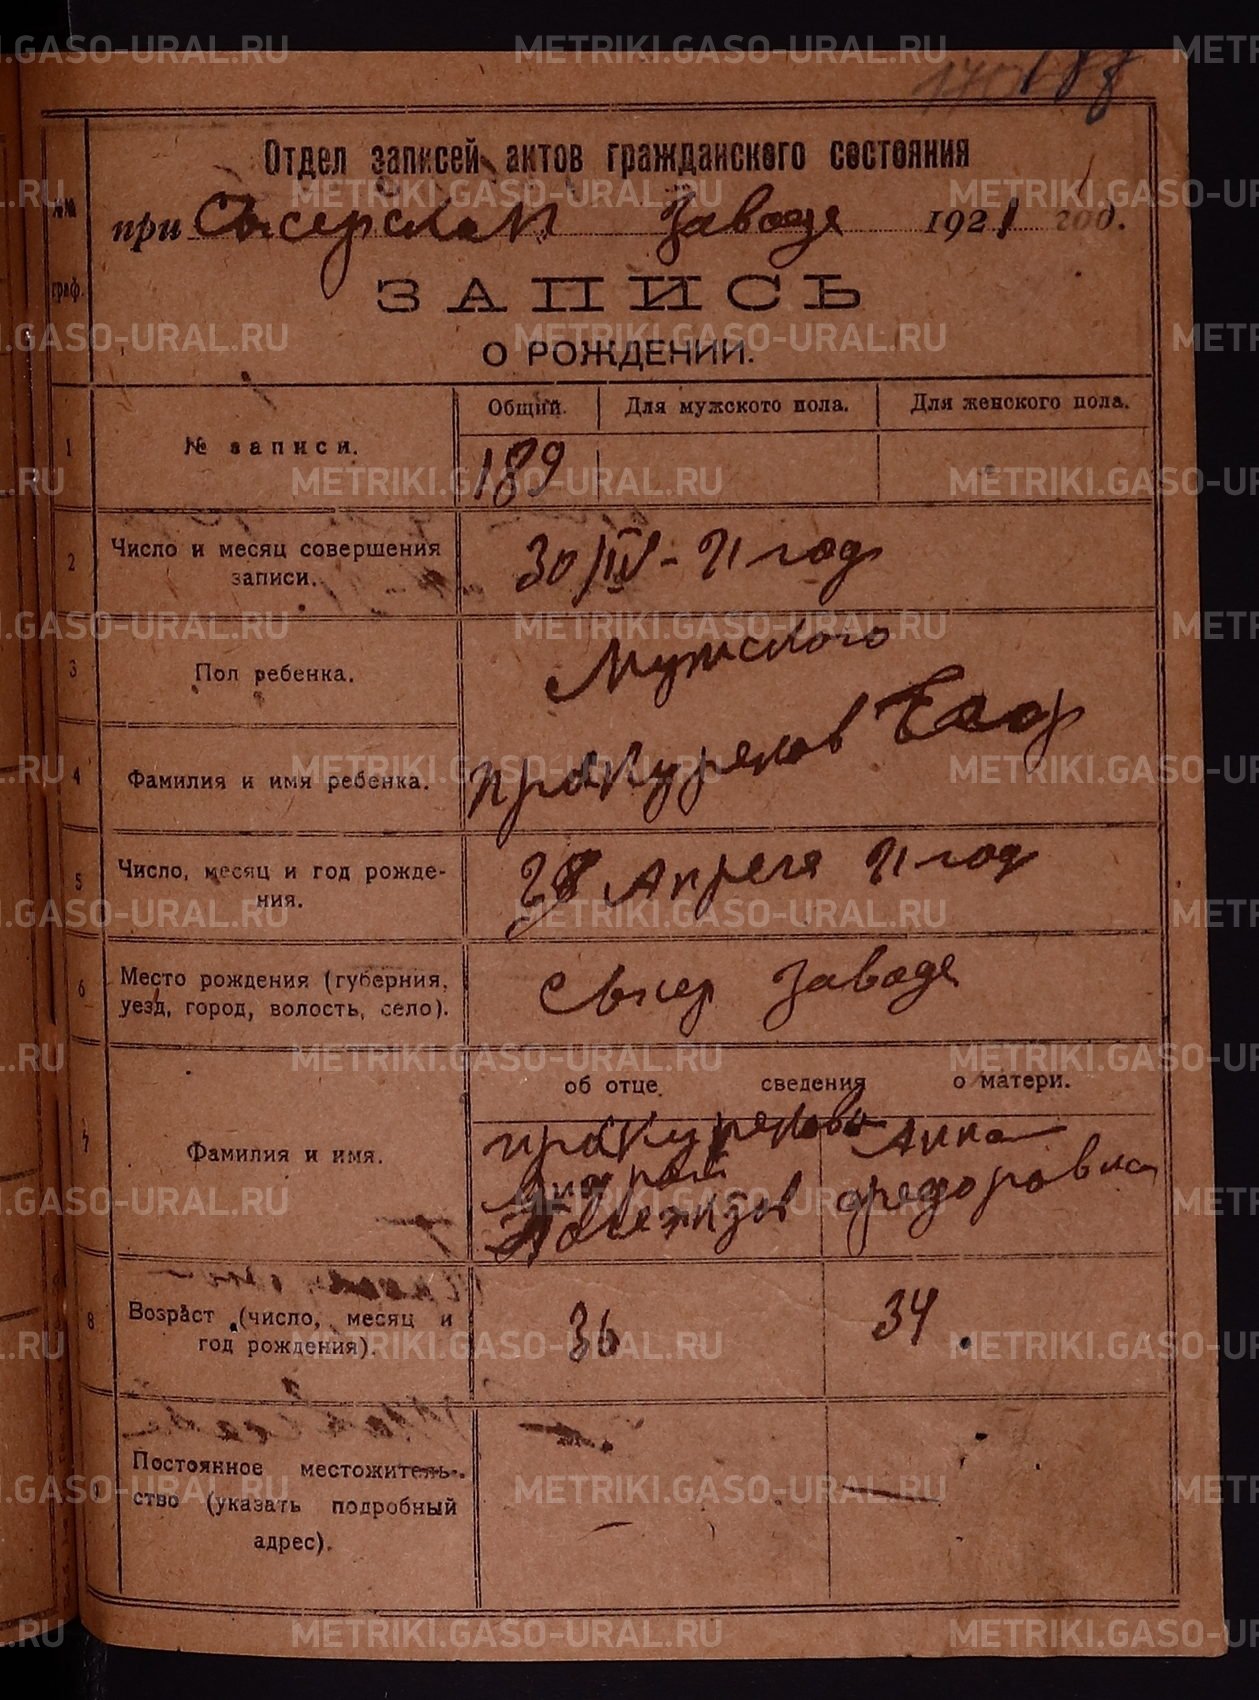 188
Отдел записей актов гражданского состояния
при Сысерском Заводе 1921 год.
№№
граф.
ЗАПИСЬ
О РОЖДЕНИИ.
1
№ записи.
Общий.
Для мужского пола.
Для женского пола.
189
2
Число и месяц совершения
записи.
30/IV - 21 год
3
Пол ребенка.
Мужского
4
Фамилия и имя ребенка.
Пракуряков
5
Число, месяц и год рожде-
ния.
28 Апреля 21 год
6
Место рождения (губерния,
уезд, город, волость, село).
Сысер Заводе
об отце
сведения
о матери.
7
Фамилия и имя.
Пракуряковы
Андрей
Анна
Федоровна
8
Возраст (число, месяц и
год рождения).
36
34
Постоянное местожитель-
ство (указать подробный
адрес).
METRIKI.GASO-URAL.RU